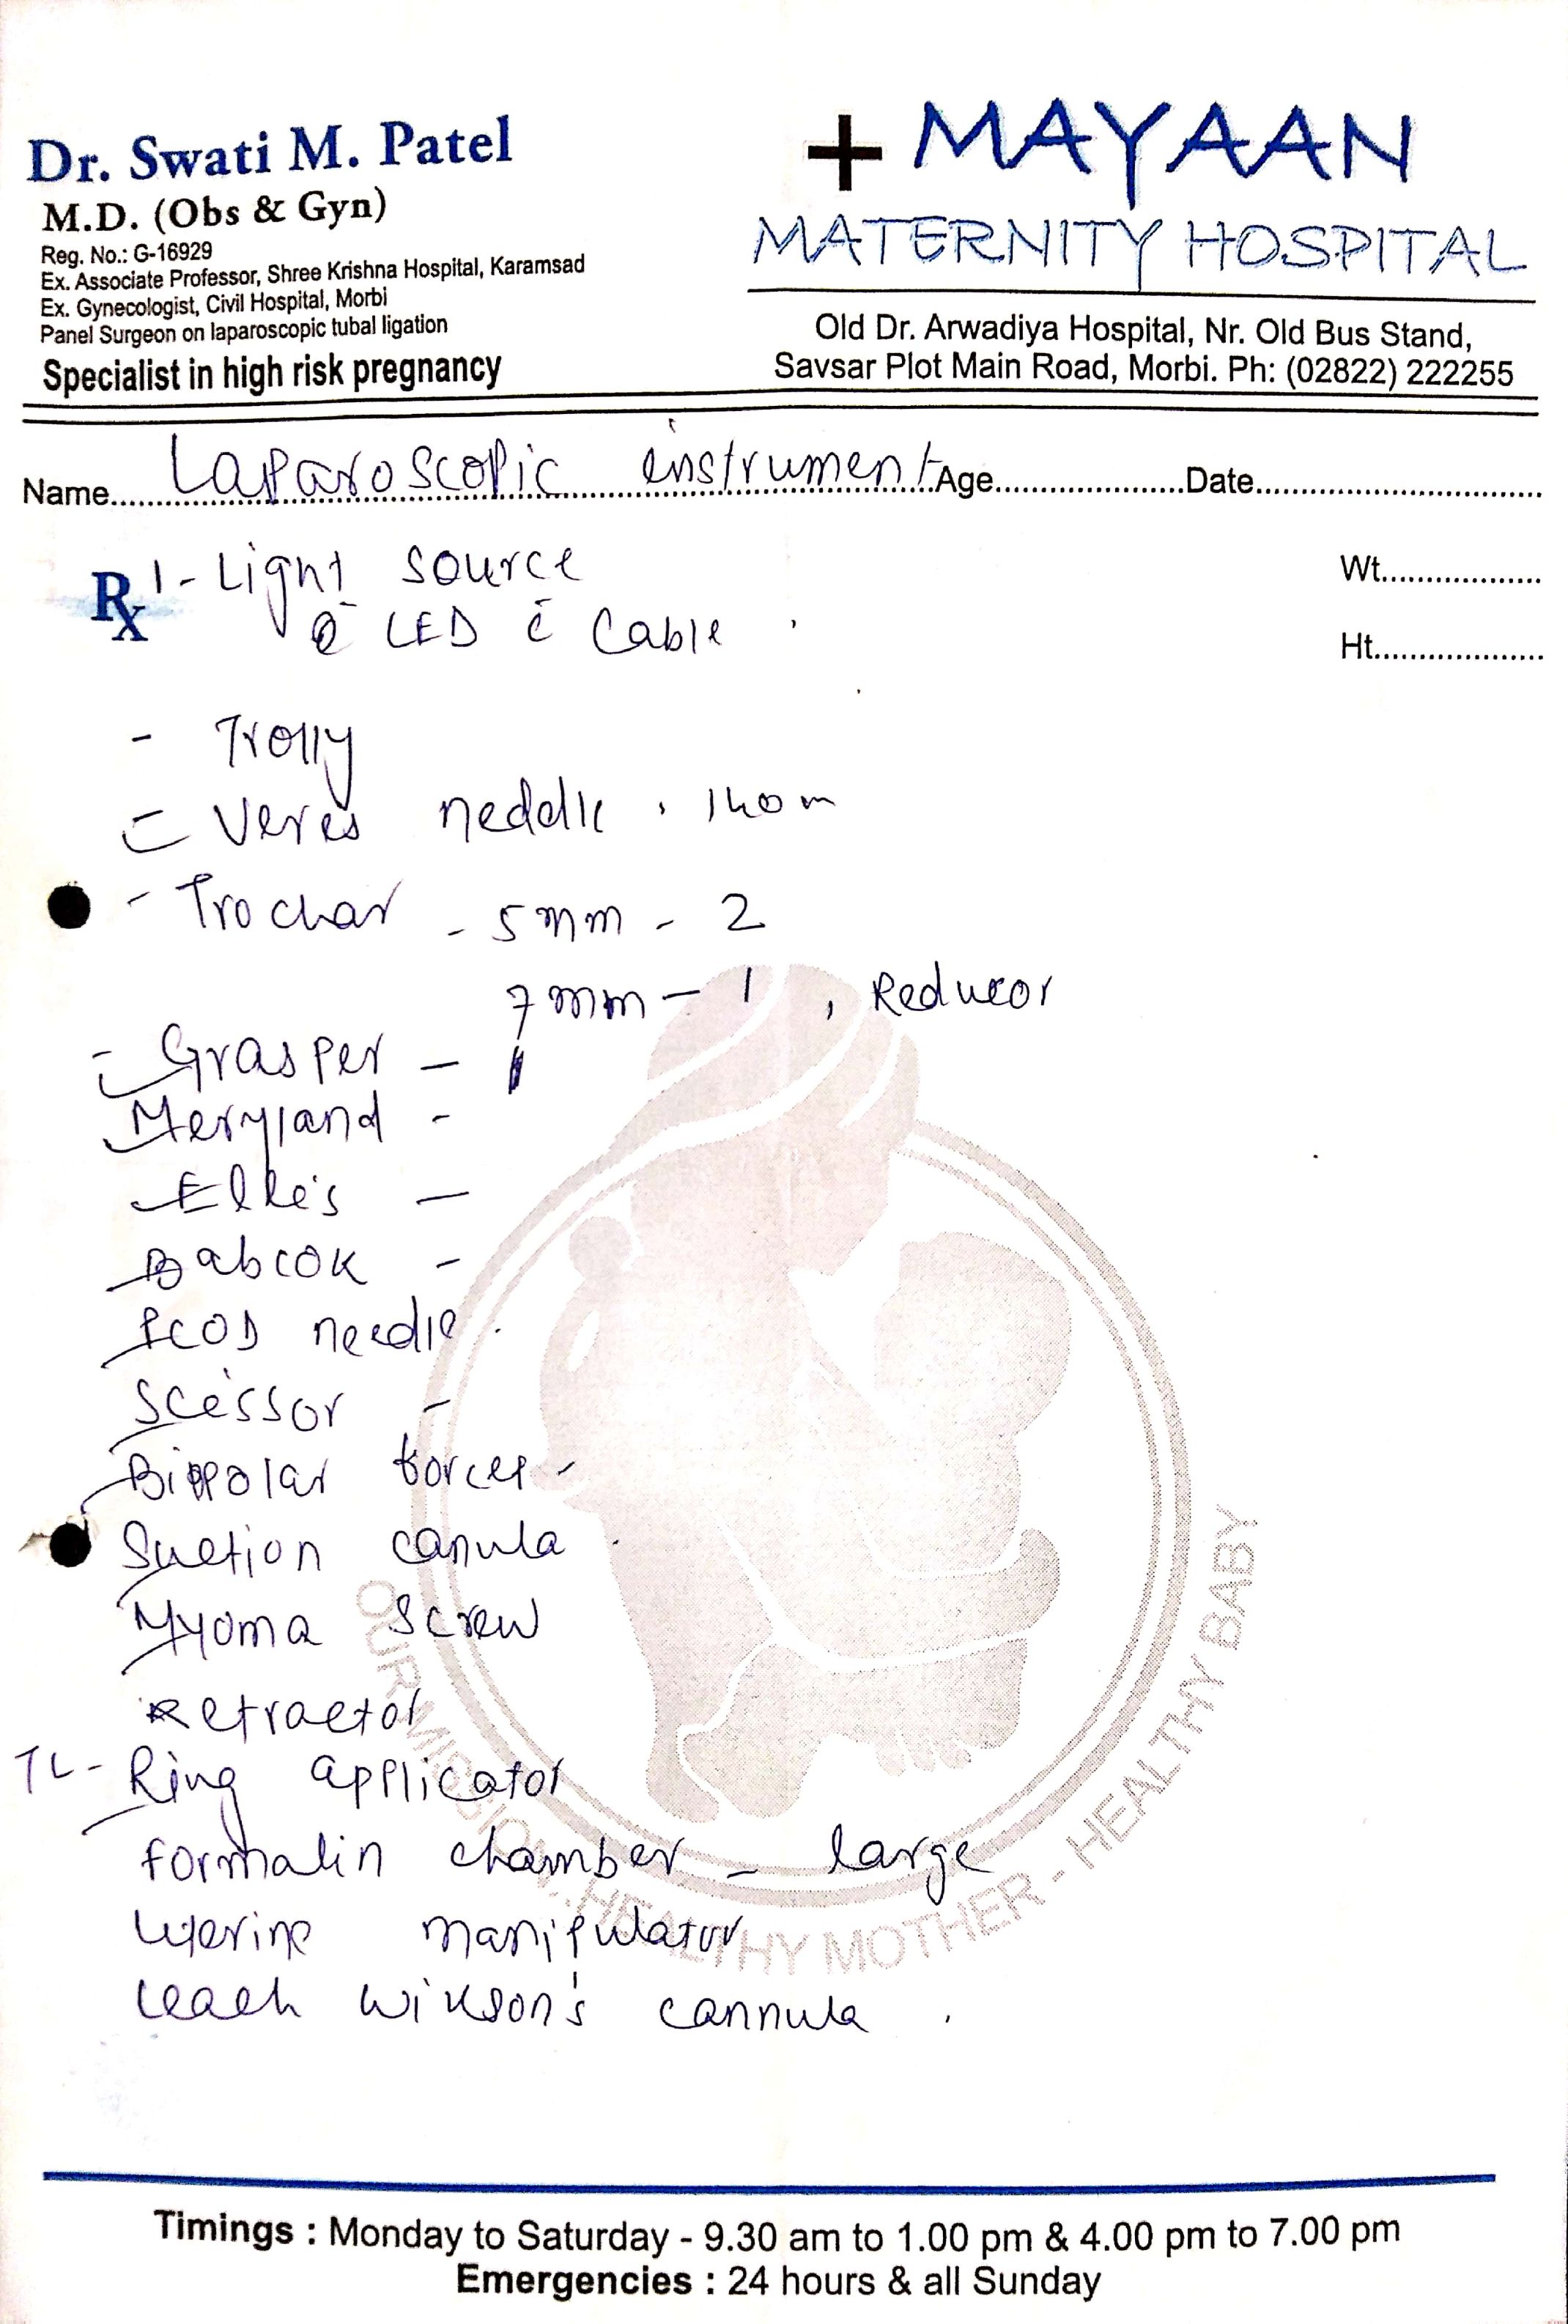 Dr. Swati M. Patel
M.D. (Obs & Gyn)
Reg. No.: G-16929
Ex. Associate Professor, Shree Krishna Hospital, Karamsad
Ex. Gynecologist, Civil Hospital, Morbi
Panel Surgeon on laparoscopic tubal ligation
Specialist in high risk pregnancy
+ MAYAAN
MATERNITY HOSPITAL
Old Dr. Arwadiya Hospital, Nr. Old Bus Stand,
Savsar Plot Main Road, Morbi. Ph: (02822) 222255
Name..... Laparoscopic instrument Age..... Date.....
Rx 1 - Light source
LED c̄ Cable
Wt.....
Ht.....
- Trolly
- Veres neddle
- Trochar - 5 mm - 2
7 mm - 1, Reducor
- Grasper - 1
Meryland -
Elle's -
Babcok -
PCOD needle.
Scissor -
Bippolar forcep -
Suction canula
Myoma Screw
Retractor
TL - Ring applicator
formalin chamber - large
Uterine manipulator
Leach Wilkson's cannula.
OUR MISSION...HEALTHY MOTHER - HEALTHY BABY
Timings : Monday to Saturday - 9.30 am to 1.00 pm & 4.00 pm to 7.00 pm
Emergencies : 24 hours & all Sunday